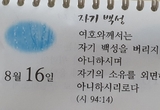 자기 백성
여호와께서는
자기 백성을 버리지
아니하시며
자기의 소유를 외면하
아니하시리로다
(시 94:14)
8월 16일